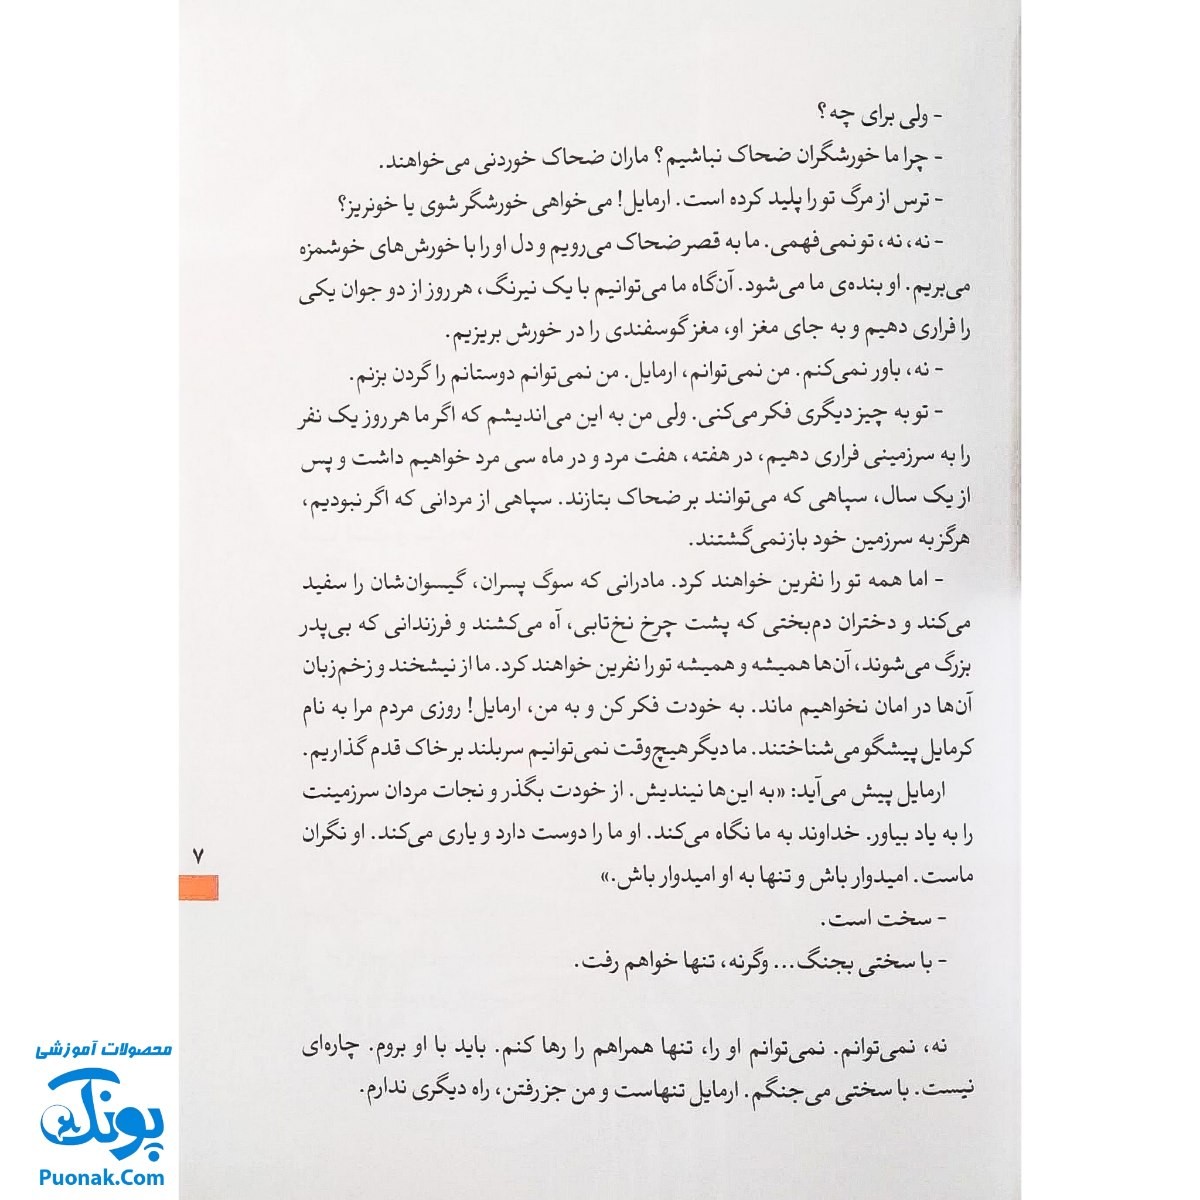 - ولی برای چه؟
- چرا ما خورشگران ضحاک نباشیم؟ ماران ضحاک خوردنی می‌خواهند.
- ترس از مرگ تو را پلید کرده است. ارمایل! می‌خواهی خورشگر شوی یا خونریز؟
- نه، نه، تو نمی‌فهمی. ما به قصر ضحاک می‌رویم و دل او را با خورش‌های خوشمزه
می‌بریم. او بنده‌ی ما می‌شود. آن‌گاه ما می‌توانیم با یک نیرنگ، هر روز از دو جوان یکی
را فراری دهیم و به جای مغز او، مغز گوسفندی را در خورش بریزیم.
- نه، باور نمی‌کنم. من نمی‌توانم، ارمایل. من نمی‌توانم دوستانم را گردن بزنم.
- تو به چیز دیگری فکر می‌کنی. ولی من به این می‌اندیشم که اگر ما هر روز یک نفر
را به سرزمینی فراری دهیم، در هفته، هفت مرد و در ماه سی مرد خواهیم داشت و پس
از یک سال، سپاهی که می‌توانند بر ضحاک بتازند. سپاهی از مردانی که اگر نبودیم،
هرگز به سرزمین خود بازنمی‌گشتند.
- اما همه تو را نفرین خواهند کرد. مادرانی که سوگ پسران، گیسوان‌شان را سفید
می‌کند و دختران دم‌بختی که پشت چرخ نخ‌تابی، آه می‌کشند و فرزندانی که بی‌پدر
بزرگ می‌شوند، آن‌ها همیشه و همیشه تو را نفرین خواهند کرد. ما از نیشخند و زخم‌زبان
آن‌ها در امان نخواهیم ماند. به خودت فکر کن و به من، ارمایل! روزی مردم مرا به نام
کرمایل پیشگو می‌شناختند. ما دیگر هیچ‌وقت نمی‌توانیم سربلند بر خاک قدم گذاریم.
ارمایل پیش می‌آید: «به این‌ها نیندیش. از خودت بگذر و نجات مردان سرزمینت
را به یاد بیاور. خداوند به ما نگاه می‌کند. او ما را دوست دارد و یاری می‌کند. او نگران
ماست. امیدوار باش و تنها به او امیدوار باش.»
- سخت است.
- با سختی بجنگ... وگرنه، تنها خواهم رفت.
نه، نمی‌توانم. نمی‌توانم او را، تنها همراهم را رها کنم. باید با او بروم. چاره‌ای
نیست. با سختی می‌جنگم. ارمایل تنهاست و من جز رفتن، راه دیگری ندارم.
۷
محصولات آموزشی
پونک
Puonak.Com